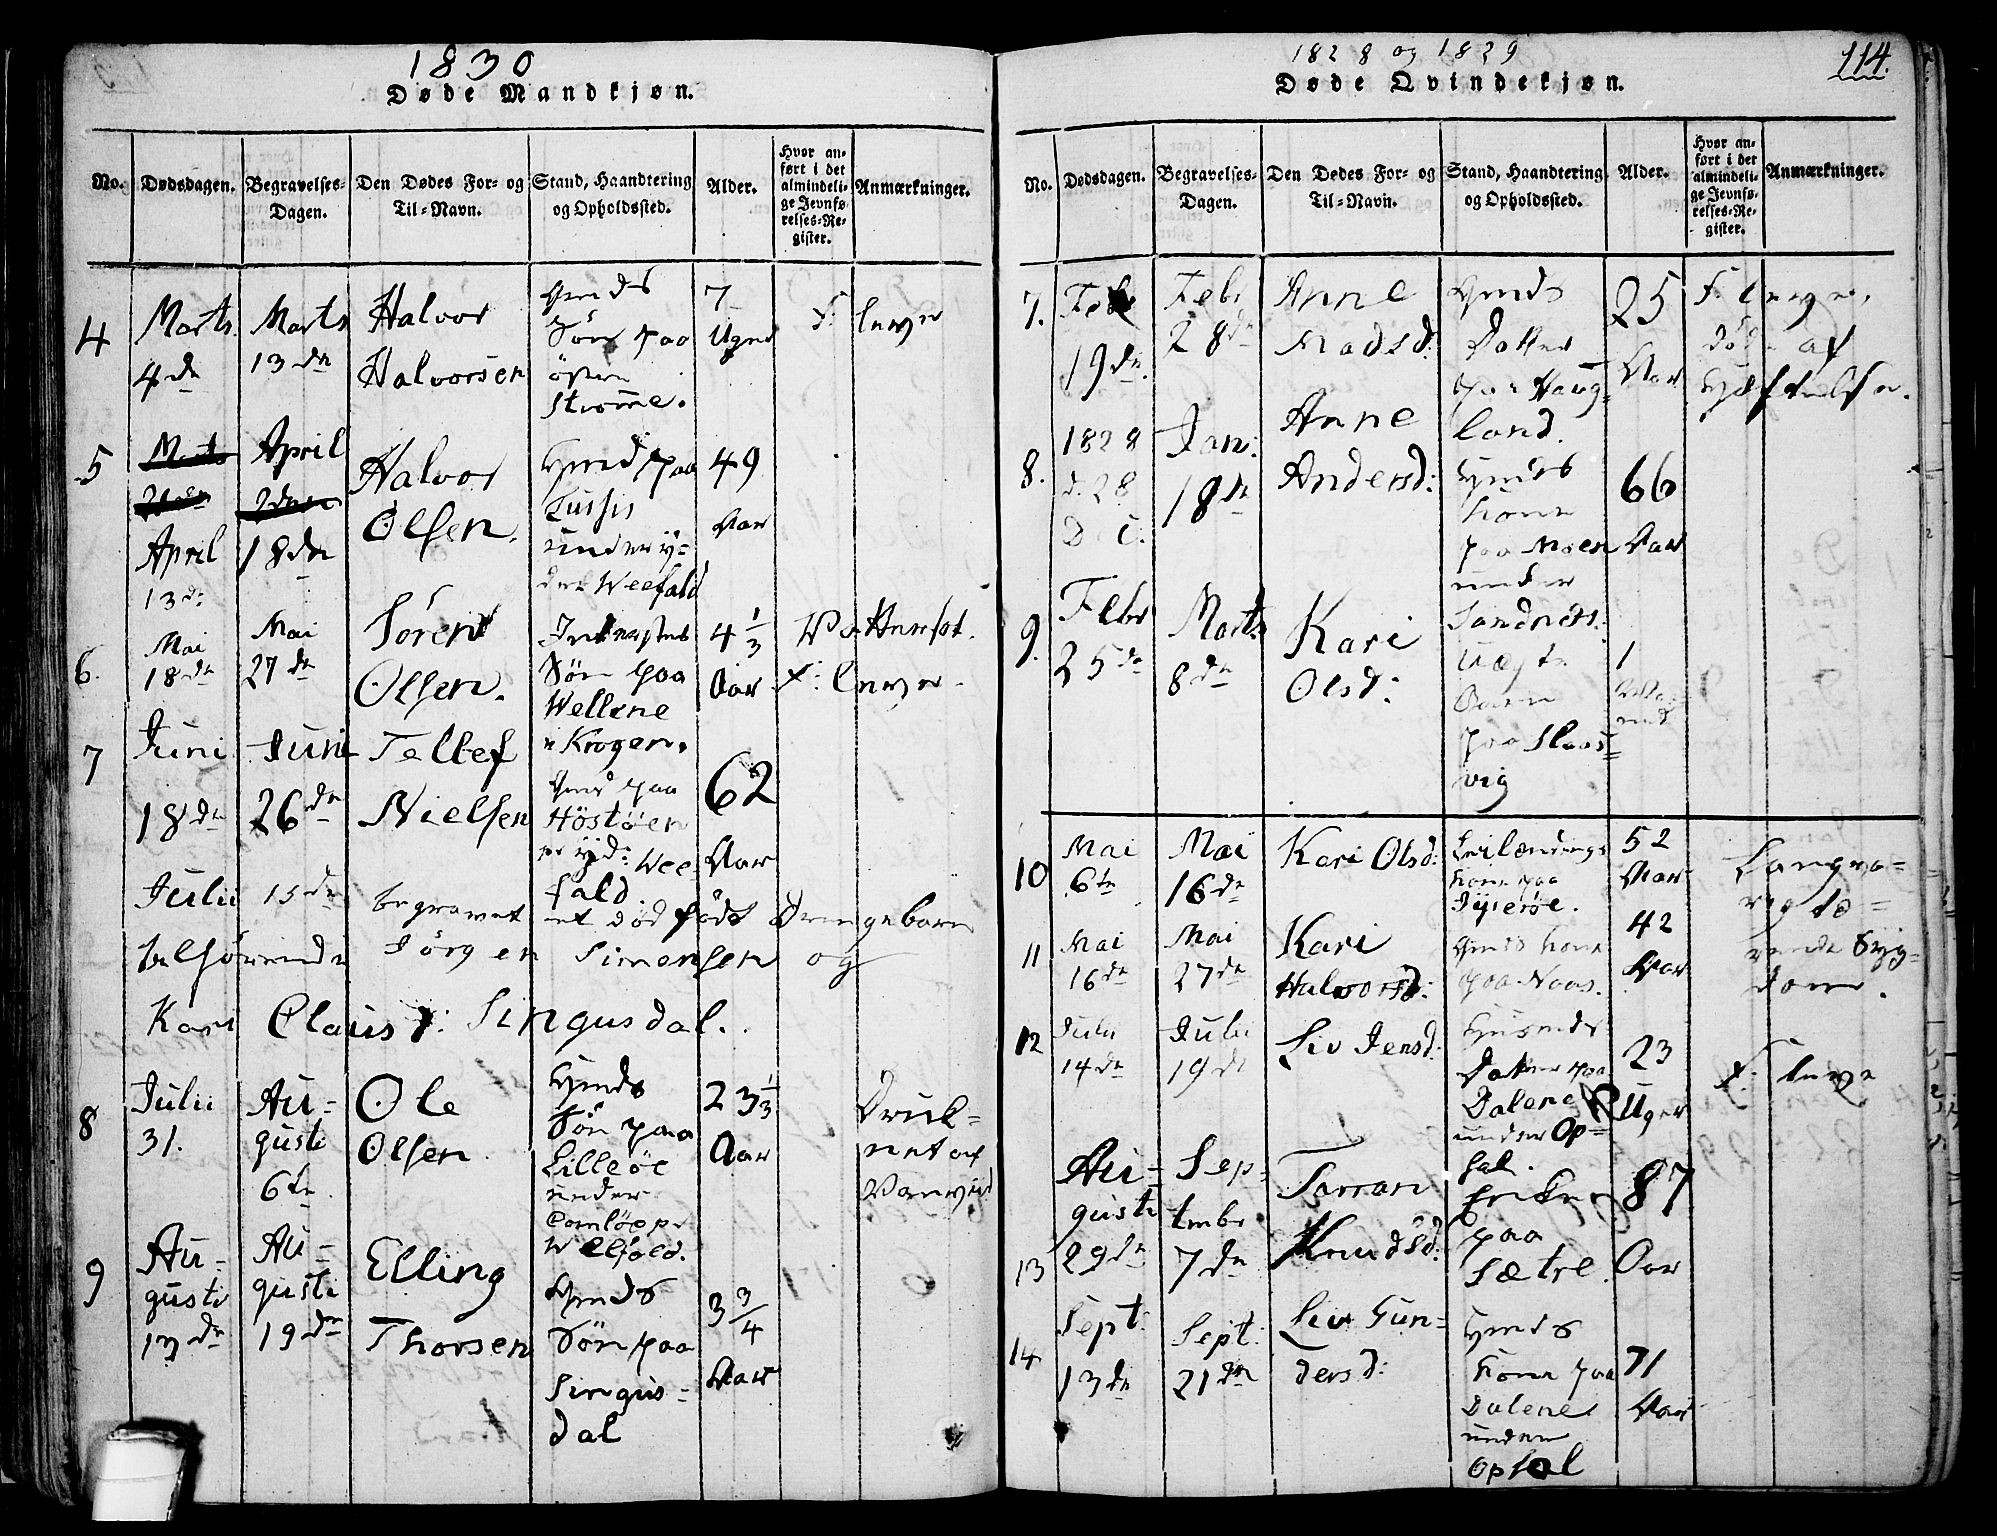 1830
Døde Mandkjøn.
No.
Dødsdagen.
Begravelses-
Dagen.
Den Dødes For- og
Til-Navn.
Stand, Haandtering
og Opholdssted.
Alder.
Hvor an-
ført i det
almindeli-
ge Jevnfø-
relses-Re-
gister.
Anmærkninger.
4
Marts
4de
Marts
13de
Halvor
Halvorsen
Gmds
Søn paa
östre
Strømme.
7
Uger
5
Marts
April
13de
April
18de
Halvor
Olsen.
Gmd paa
under y-
dre Weefald
49
Aar
6.
Mai
18de
Mai
27de
Søren
Olsen.
Inderstes
Søn paa
Wellene
i Krogen.
4 1/3
Aar
7
Juni
18de
Juni
26de
Tellef
Nielsen
Gmd paa
Höstøen
yd: Wee-
fald
62
Aar
Julii
15de
begravet
et død født Drengebarn
Jørgen Simensen og
Kari Clausd: Singusdal.
8
Julii
31.
Au-
gusti
6te
Ole
Olsen
Gmds
Søn paa
Lilleöe
under
Weefald.
23 1/3
Aar
Druk-
net af
9
Au-
gusti
13de
Au-
gusti
19de
Elling
Thorsen
Gmds
Søn paa
Singus-
dal
3 3/4
Aar
1828 og 1829
114.
Døde Qvindekjøn.
No.
Dødsdagen.
Begravelses-
Dagen.
Den Dødes For- og
Til-Navn.
Stand, Haandtering
og Opholdssted.
Alder.
Hvor an-
ført i det
almindeli-
ge Jevnfø-
relses-Re-
gister.
Anmærkninger.
7.
Febr
19de.
Febr
28de
Anne
Madsd:
Gmds
Datter
paa Haug-
land.
25
Aar
død af
8.
1828
d. 28
Dec.
Jan:
18de
Anne
Andersd:
Gmds
kone
paa Moen
under
Sandnes.
66
Aar
9.
Febr
25de
Marts
8de
Kari
Olsd:
Uægte
Barn
paa Slaas-
vig
1
10
Mai
6te
Mai
16de
Kari Olsd:
kone paa
Dyrerøe.
52
Aar
Langva-
rig tæ-
rende Syg-
dom.
11
Mai
16de
Mai
27de
Kari
Halvorsd:
Gmds kone
paa Naas.
42
Aar
12
Julii
14de
Julii
19de
Liv Jensd:
Husmds
Datter paa
Dalene
under Op-
sal.
23
Uger
13
Au-
gusti
29de
Sep-
tembr
7de
Tarran
Knudsd:
Enke
paa
Sætre
87
Aar
14
Sept:
13de
Sept:
21de
Liv Gun-
dersd:
Gmds
kone paa
Dalene
under
Opsal
71
Aar